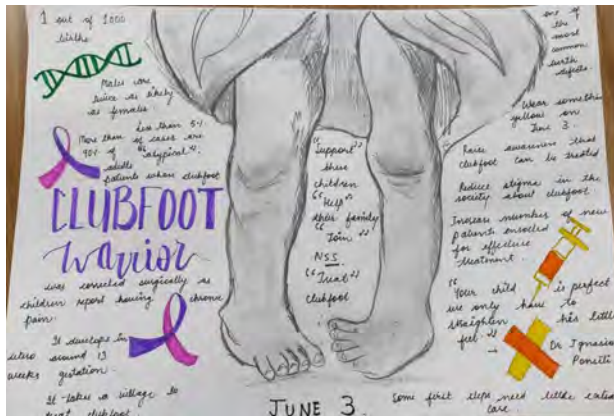 1 out of 1000
births.
Males are
twice as likely
as females
Less than 5%
of cases are
"atypical".
More than
90% of
adults
patients whose clubfoot
CLUBFOOT
Warrior
was corrected surgically as
children report having chronic
pain.
It develops in
utero around 13
weeks gestation.
It takes a village to
treat clubfoot
"Support"
these
children
"Help"
their family
"Join"
NSS.
"Treat"
clubfoot
JUNE 3
one of
the
most
common
birth
defects.
Wear something
yellow on
June 3.
Raise awareness that
clubfoot can be treated
Reduce stigma in the
society about clubfoot.
Increase number of new
patients enrolled
for effective
treatment.
"Your child is perfect
we only have to
straighten his little
feet."
- Dr Ignacio
Ponseti
Some first steps need little extra
care